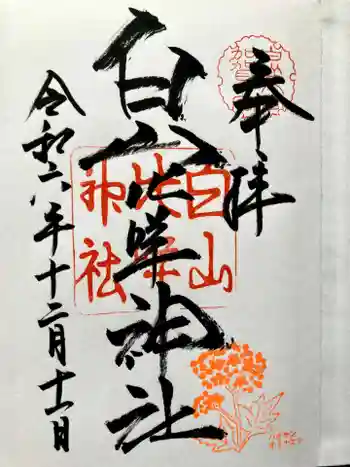 奉拝
白山比咩神社
令和六年十二月十一日
白山
比咩
神社